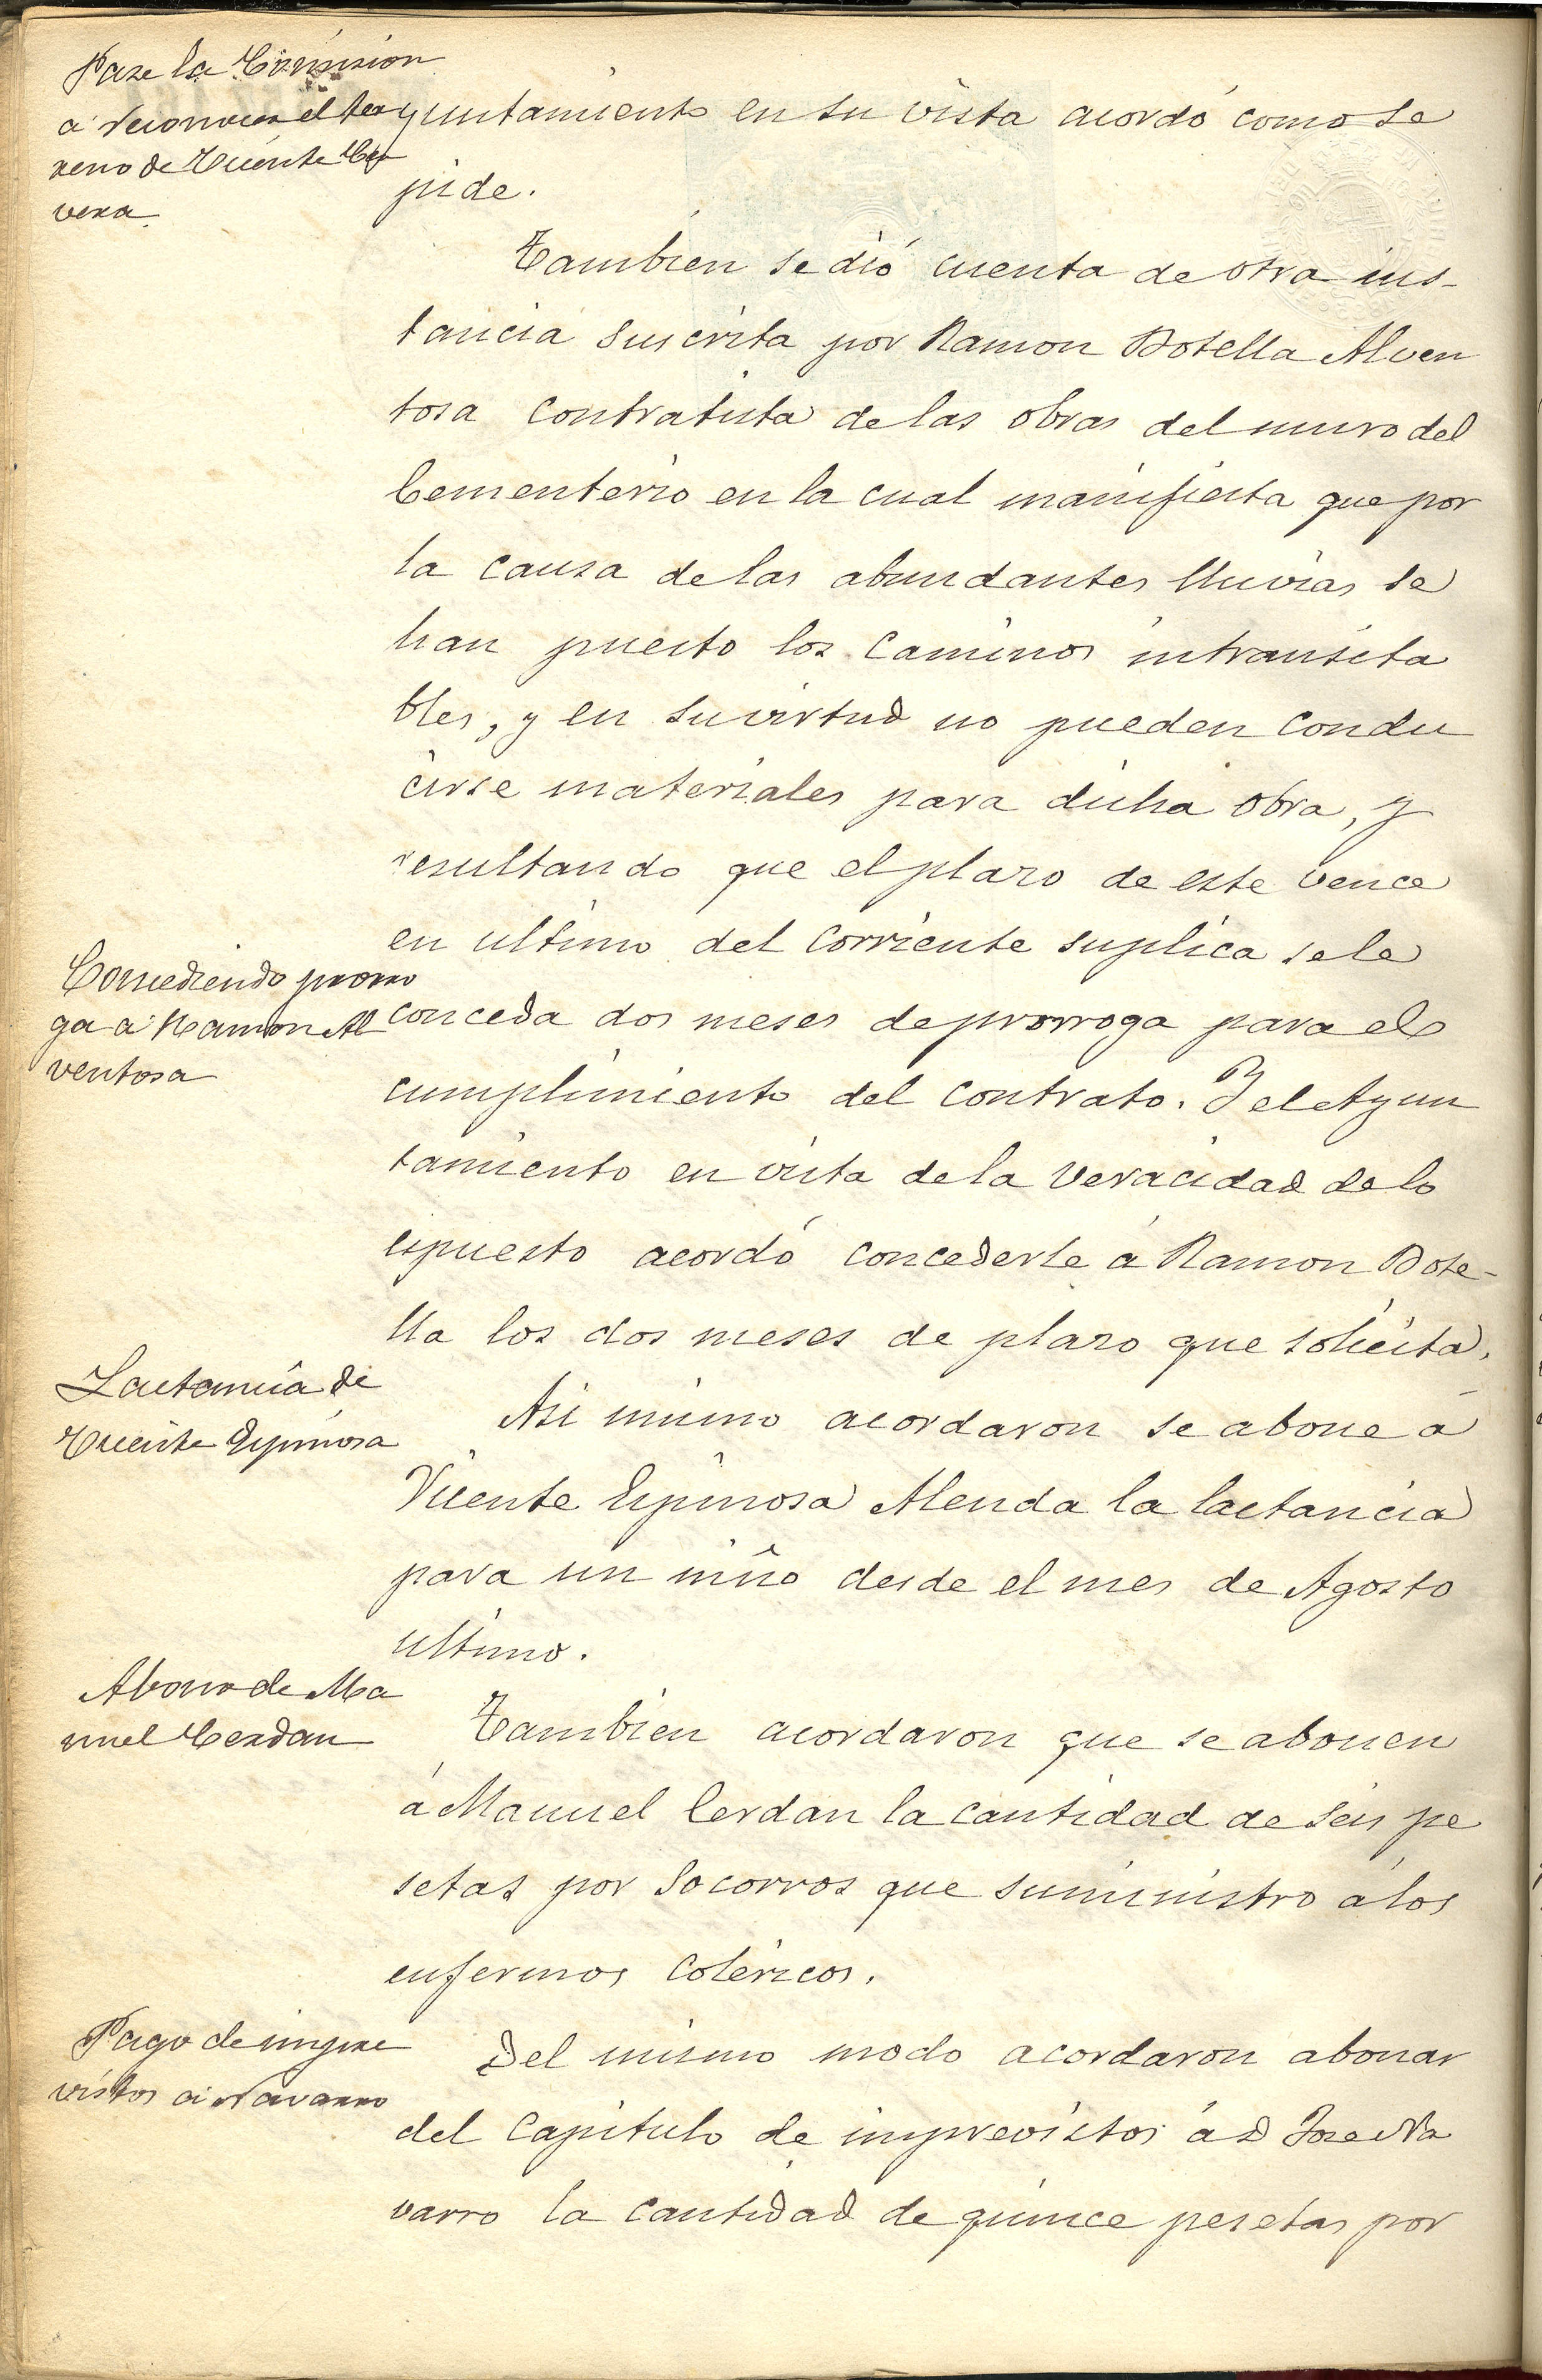 Pase la Comision
a reconocer el ter
reno de Vicente Cer
vera.
yuntamiento en su vista acordó como se
pide.
Tambien se dió cuenta de otra ins-
tancia suscrita por Ramon Botella Alven
tosa contratista de las obras del muro del
Cementerio en la cual manifiesta que por
la causa de las abundantes lluvias se
han puesto los caminos intransita
bles, y en su virtud no pueden condu
cirse materiales para dicha obra, y
resultando que el plazo de este vence
en ultimo del corriente suplica se le
Concediendo prorro
ga a Ramon Al
ventosa
conceda dos meses de prorroga para el
cumplimiento del contrato. Y el Ayun
tamiento en vista de la veracidad de lo
espuesto acordó concederle á Ramon Bote-
lla los dos meses de plazo que solicita.
Lactancia de
Vicente Espinosa
Asi mismo acordaron se abone á
Vicente Espinosa Alenda la lactancia
para un niño desde el mes de Agosto
ultimo.
Abono de Ma
nuel Cerdan
Tambien acordaron que se abonen
á Manuel Cerdan la cantidad de seis pe
setas por socorros que suministro á los
enfermos coléricos.
Pago de impre
vistos a Navarro
Del mismo modo acordaron abonar
del capitulo de imprevistos á D Jose Na
varro la cantidad de quince pesetas por